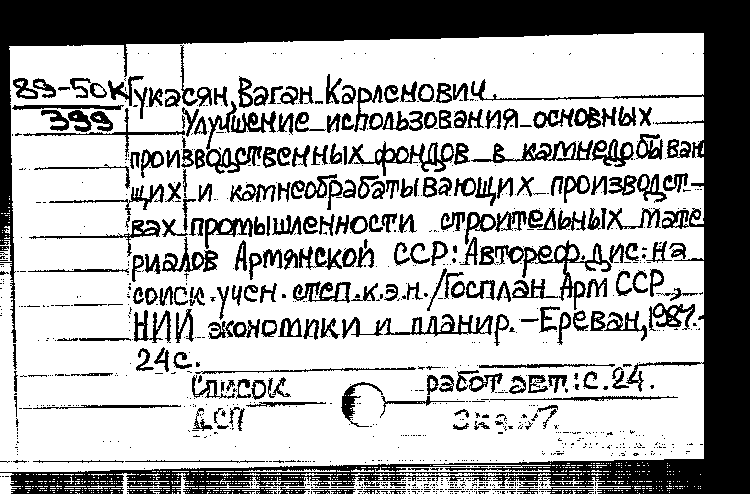 89-50к Гукасян, Ваган Карленович.
399 Улучшение использования основных
производственных фондов в камнедобываю
щих и камнеобрабатывающих производст-
вах промышленности строительных мате
риалов Армянской ССР: Автореф. дис. на
соиск. учен. степ. к.э.н. / Госплан Арм ССР,
НИИ экономики и планир. - Ереван, 1987.-
24 с.
Список работ авт.: с. 24.
ДСП Экз. №7.